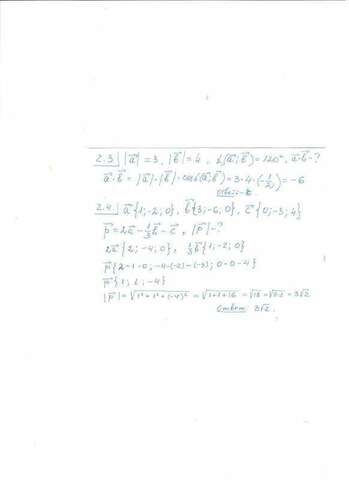 2.3. |a⃗| = 3, |b⃗| = 4, ∠(a⃗; b⃗) = 120°, a⃗·b⃗ - ?
a⃗·b⃗ = |a⃗|·|b⃗|·cos∠(a⃗; b⃗) = 3·4·(-1/2) = -6
Ответ: -6.
2.4. a⃗{1; -2; 0}, b⃗{3; -6; 0}, c⃗{0; -3; 4}
p⃗ = 2a⃗ - 1/3b⃗ - c⃗, |p⃗| - ?
2a⃗{2; -4; 0}, 1/3b⃗{1; -2; 0}
p⃗{2-1-0; -4-(-2)-(-3); 0-0-4}
p⃗{1; 1; -4}
|p⃗| = √1²+1²+(-4)² = √1+1+16 = √18 = √9·2 = 3√2
Ответ: 3√2.